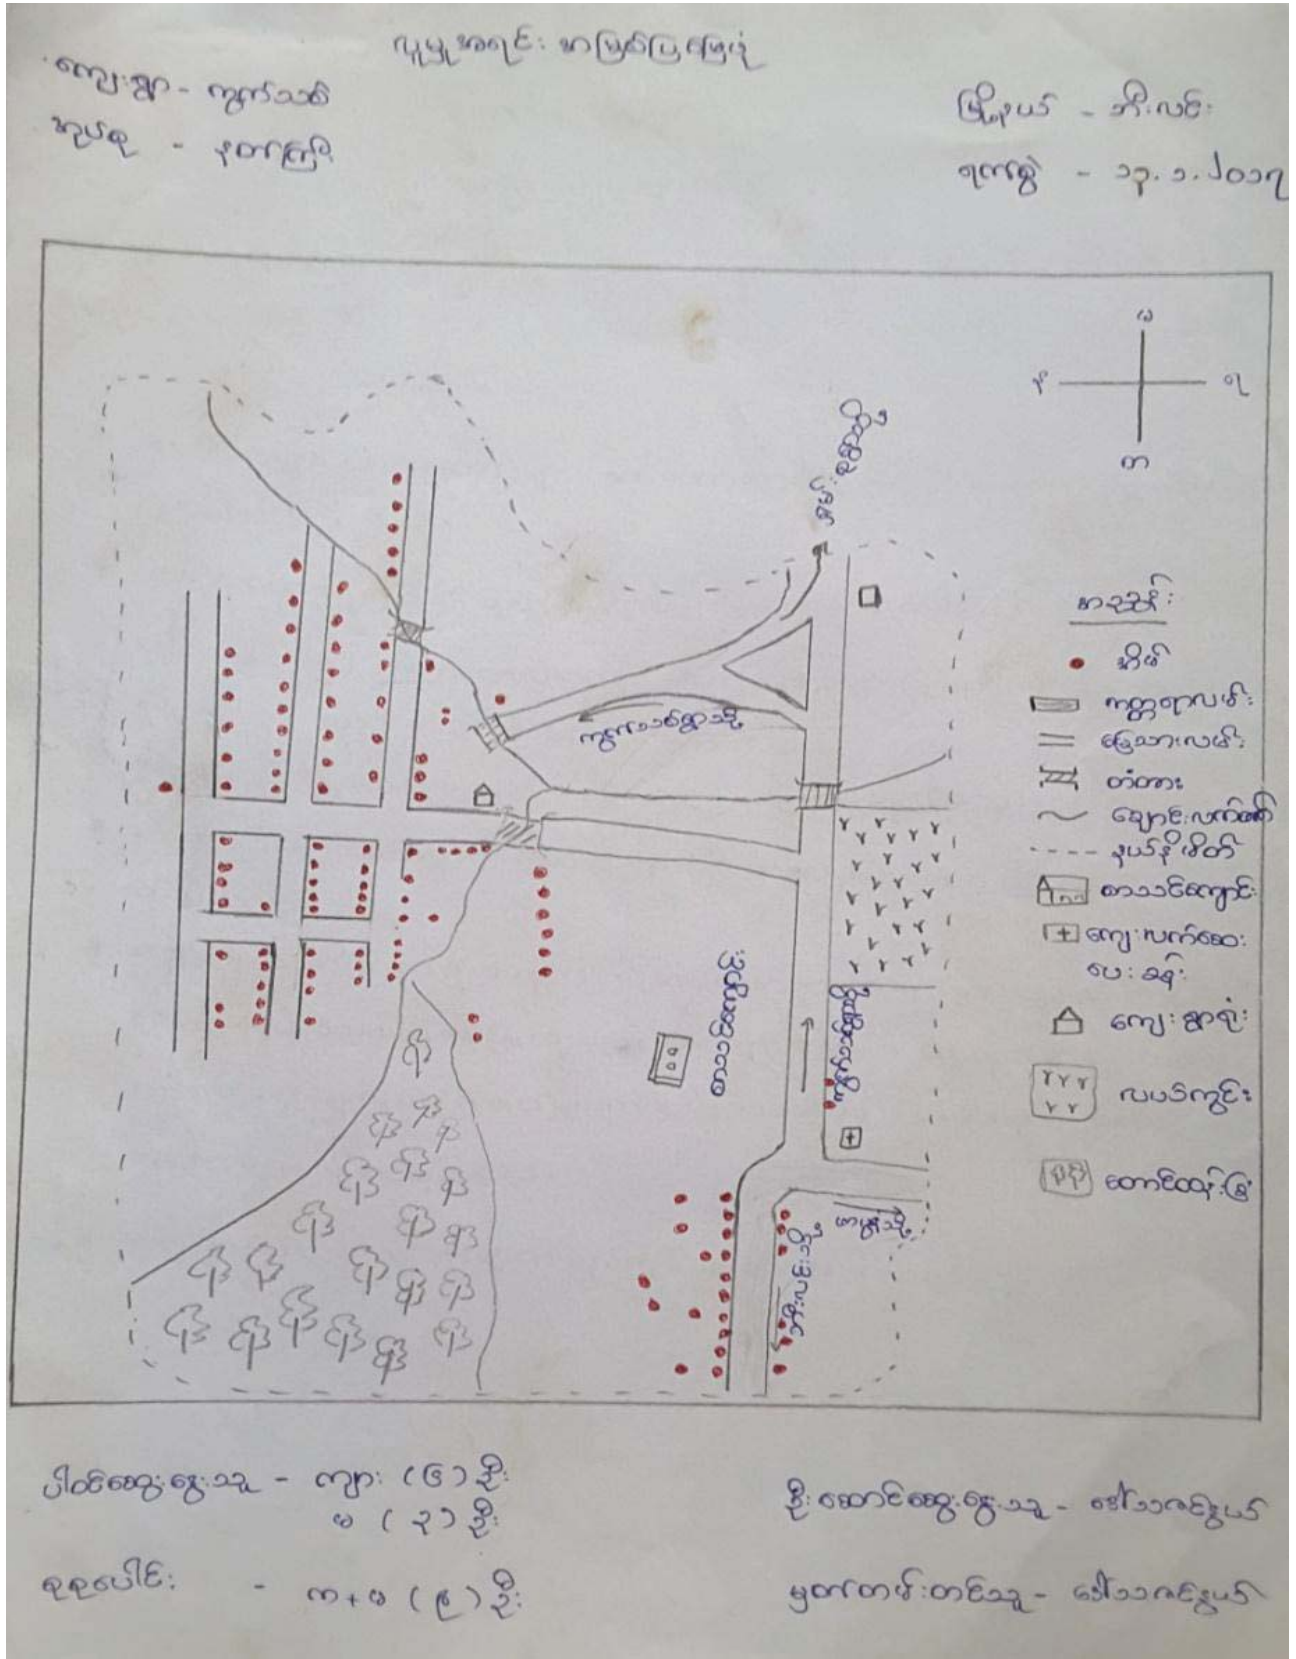 လူမှုအရင်းအမြစ်ပြမြေပုံ
ကျေးရွာ - ကွက်သစ်
အုပ်စု - နတ်ကြီး
မြို့နယ် - ဘီးလင်း
ရက်စွဲ - ၁၃.၁.၂၀၁၇
မ
ရ
တ
ကွက်သစ်ရွာသို့
အညွှန်း
အိမ်
ကတ္တရာလမ်း
မြေသားလမ်း
တံတား
ချောင်းလက်တက်
နယ်နိမိတ်
စာသင်ကျောင်း
ကျေးလက်ဆေး
ပေးခန်း
ကျေးရွာရုံး
လယ်ကွင်း
တောင်ထွန်းခြံ
ဘီးလင်းသို့
ပါဝင်ဆွေးနွေးသူ - ကျား (၆) ဦး
မ (၃) ဦး
စုစုပေါင်း - က + မ (၉) ဦး
ဦးဆောင်ဆွေးနွေးသူ - ဒေါ်သဇင်နွယ်
မှတ်တမ်းတင်သူ - ဒေါ်သဇင်နွယ်